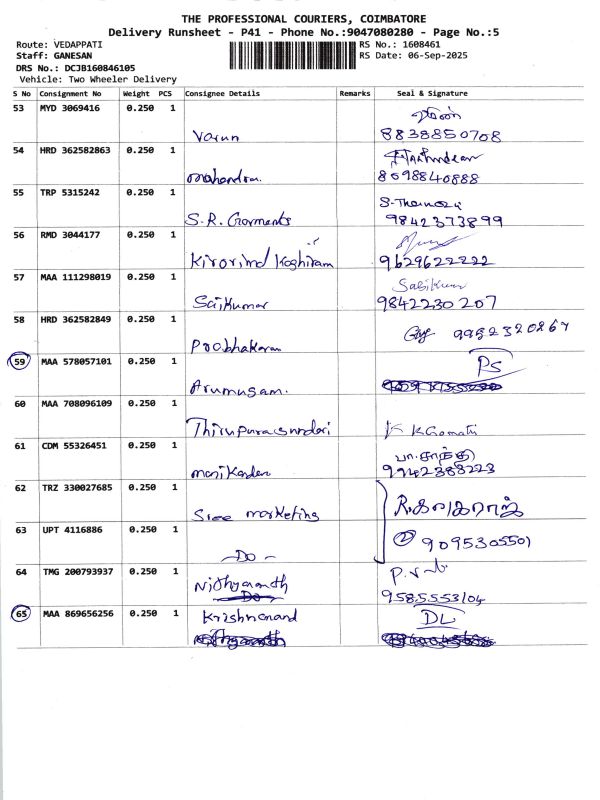 THE PROFESSIONAL COURIERS, COIMBATORE
Delivery Runsheet - P41 - Phone No.:9047080280 - Page No.:5
Route: VEDAPPATI
RS No.: 1608461
Staff: GANESAN
RS Date: 06-Sep-2025
DRS No.: DCJB160846105
Vehicle: Two Wheeler Delivery
S No Consignment No Weight PCS Consignee Details Remarks Seal & Signature
53 MYD 3069416 0.250 1
Varun 8838850708
54 HRD 362582863 0.250 1
Mahendran. 8098840888
55 TRP 5315242 0.250 1
S.R. Garments 9842373899
56 RMD 3044177 0.250 1
9629622222
57 MAA 111298019 0.250 1
Saikumar 9842230207
58 HRD 362582849 0.250 1 9952320267
Prabhakaran
59 MAA 578057101 0.250 1 PS
Arumugam.
60 MAA 708096109 0.250 1
Thirupurasundari
61 CDM 55326451 0.250 1
Manikandan 9942388223
62 TRZ 330027685 0.250 1
Sree marketing
63 UPT 4116886 0.250 1
-Do- 9095305501
64 TMG 200793937 0.250 1
Nithyananth 9585553104
65 MAA 869656256 0.250 1 Krishnanand DL